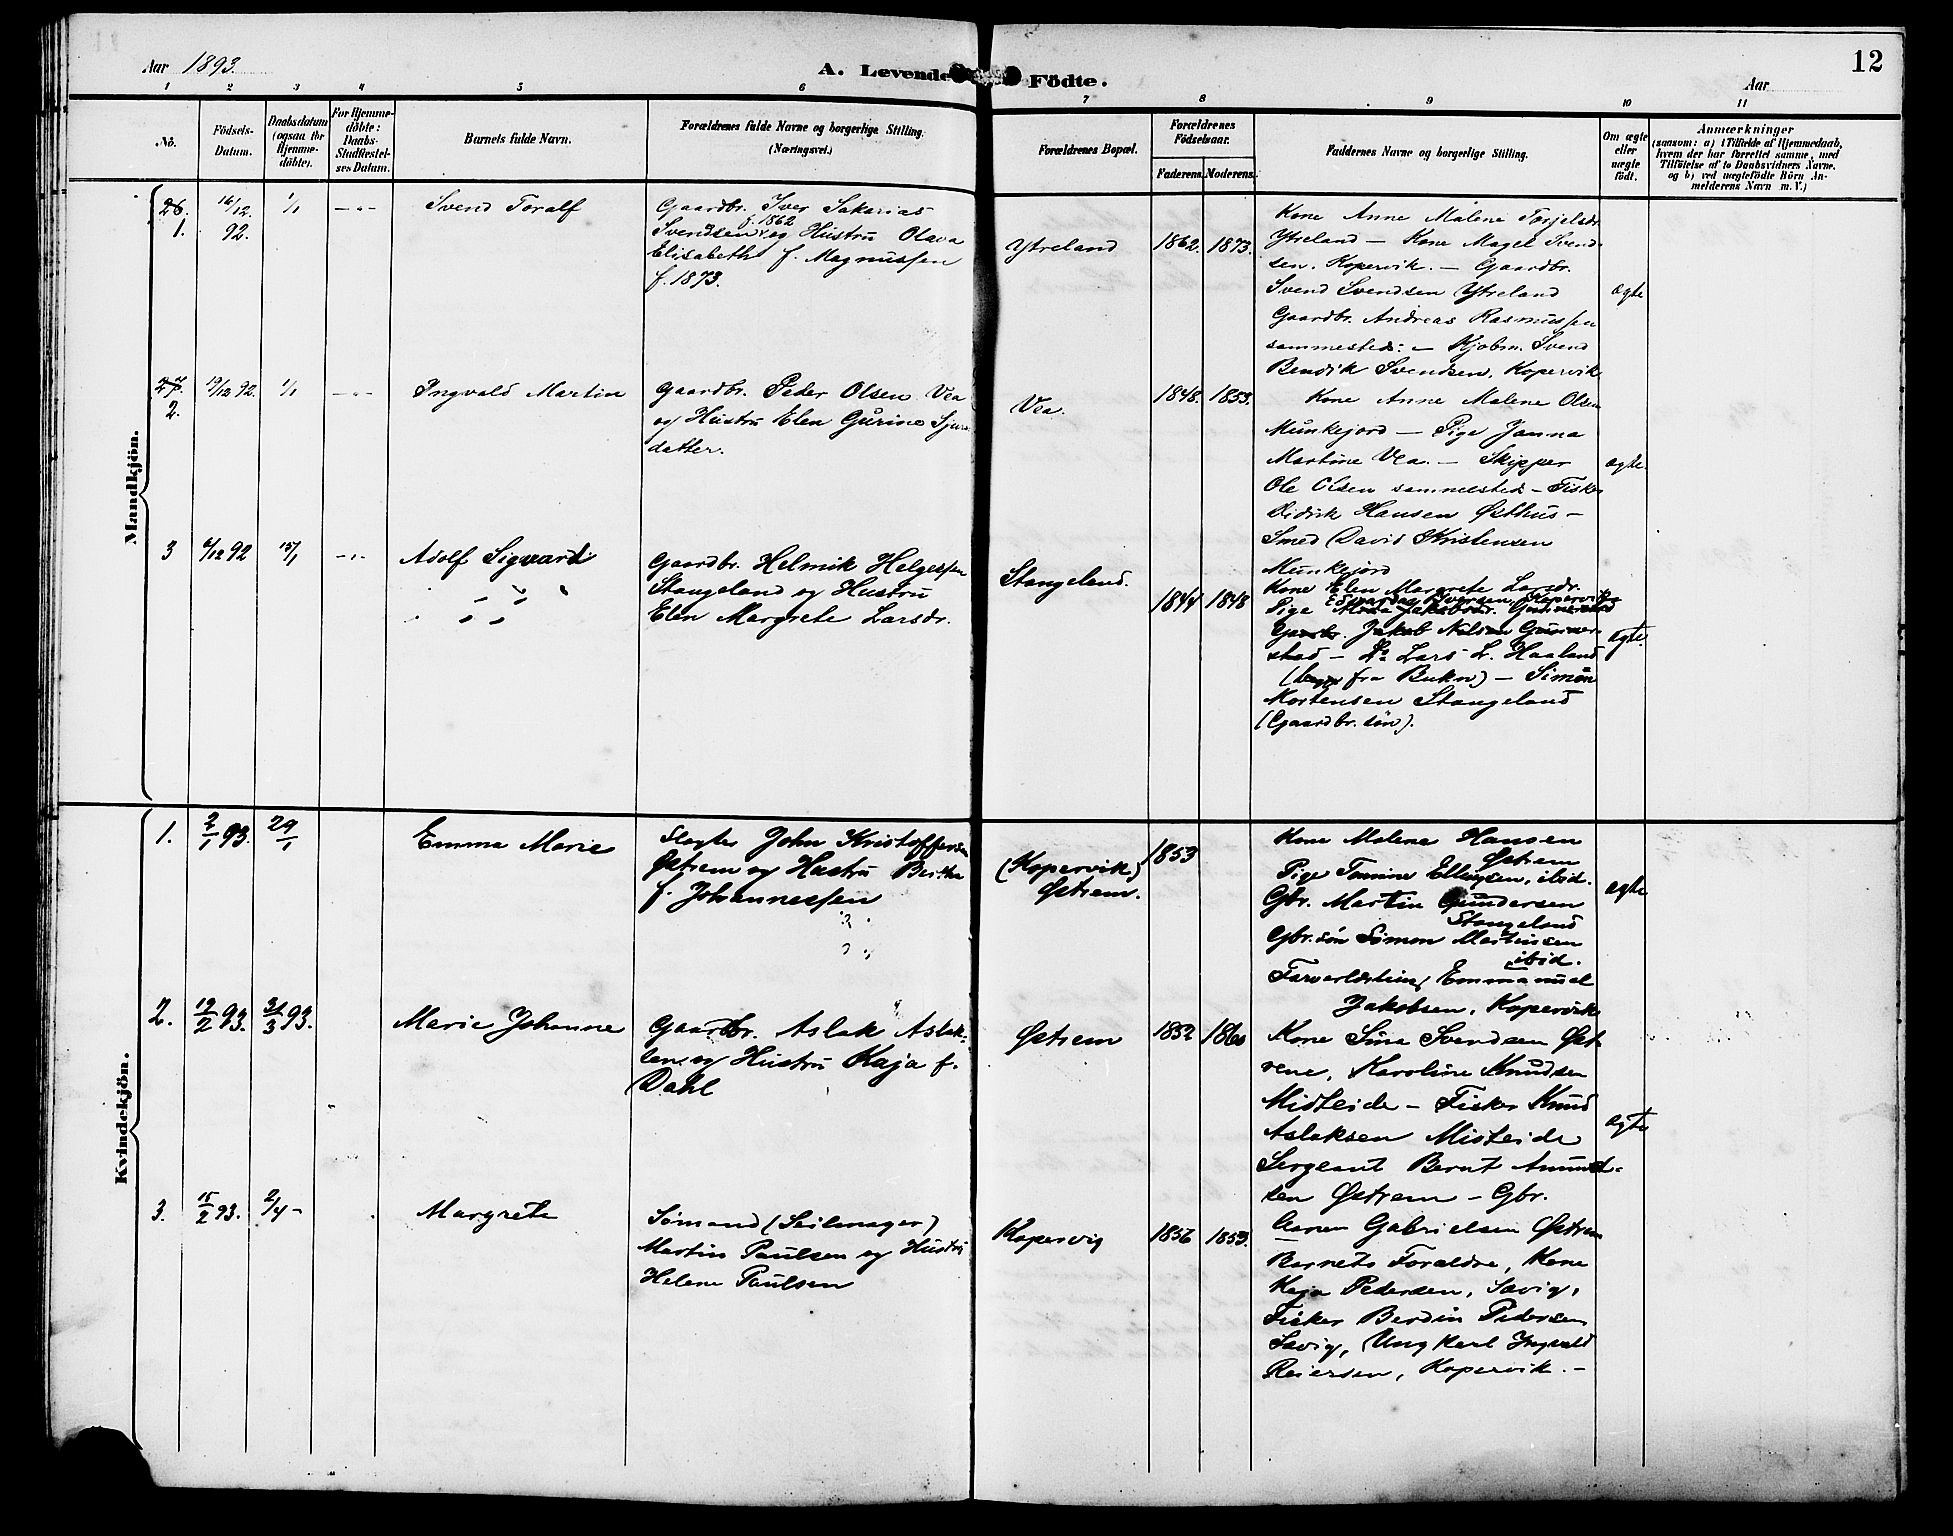 Aar 1893.
A. Levende Födte.
Aar
12
1 2 3 4 5 6 7 8 9 10 11
No.
Födsels-
Datum.
Daabsdatum
(ogsaa for
Hjemme-
döbte).
For Hjemme-
döbte:
Daabs-
Stadfæstel-
ses Datum.
Barnets fulde Navn.
Forældrenes fulde Navne og borgerlige Stilling.
(Næringsvei.)
Forældrenes Bopæl.
Forældrenes
Födselsaar.
Faderens. Moderens.
Faddernes Navne og borgerlige Stilling.
Om ægte
eller
uægte
födt.
Anmærkninger
(saasom: a) i Tilfælde af Hjemmedaab,
hvem der har forrettet samme, med
Tilföielse af to Daabsvidners Navne.
og b) ved uægtefödte Börn An-
melderens Navn m. V.)
Mandkjön.
26.
1.
16/12.
92.
1/1
Svend Toralf
Gaardbr. Iver Sakarias
f. 1862
Svendsen og Hustru Olava
Elisabeth f. Magnussen
f. 1873.
Ytreland
1862. 1873.
Kone Anne Malene Torjelsdr.
Ytreland – Kone Magel Svend-
sen. Kopervik. – Gaardbr.
Svend Svendsen Ytreland
Gaardbr. Andreas Rasmussen
sammesteds: – Kjøbm. Svend
Bendik Svendsen, Kopervik
ægte
27.
2.
19/12 92.
1/1
Ingvald Martin
Gaardbr. Peder Olsen Vea
og Hustru Elen Gurine Sjurs
datter.
Vea.
1848. 1853.
Kone Anne Malene Olsen
Munkejord – Pige Janna
Martine Vea. – Skipper
Ole Olsen sammesteds – Fisker
Didrik Hansen Østhus –
Smed David Kristensen
Munkejord
ægte
3
6/12 92
15/1
Adolf Sigvard
Gaardbr. Helmik Helgessen
Stangeland og Hustru
Elen Margrete Larsdr.
Stangeland.
1844 1848
Kone Elen Margrete Larsdr.
Iversen, Kopervik
Pige
Gaardbr. Jakob Nilsen Gunnar-
stad – Do Lars L. Haaland
( fra Bukn) – Simon
Mortensen Stangeland
(Gaardbr. søn).
ægte.
Kvindekjön.
1.
2/1 93.
29/1
Emma Marie
Slagter John Kristoffersen
Østrem og Hustru Bertha
f. Johannessen
(Kopervik)
Østrem.
1853
Kone Malene Hansen
Østrem
Pige Tomine Ellingsen, ibid.
Gbr. Martin Gundersen
Stangeland
Gbr. søn Simon Martinsen
ibid.
Farverlærling Emmanuel
Jakobsen, Kopervik
ægte
2.
19/2 93.
31/3 93.
Marie Johanne
Gaardbr. Aslak Aslak-
sen og Hustru Kaja f.
Dahl
Østrem
1852 1860
Kone Sina Svendsen Øst-
rene, Karoline Knudsen
Midteide – Fisker Knud
Aslaksen Misteide
Sergeant Bernt Amund-
sen Østrem – Gbr.
Gabrielsen Østrem
ægte
3.
15/2 93.
2/4 –
Margrete
Sømand (Seilmager)
Martin Paulsen og Hustru
Helene Paulsen
Kopervig
1856 1853.
Barnets Forældre, Kone
Kaja Pedersen, Sævig,
Fisker Berdin Pedersen
Sævig, Ungkarl Ingvald
Reiersen, Kopervik. –